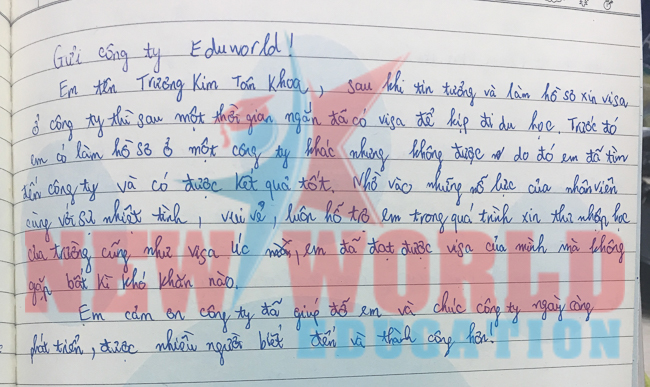 Gửi công ty Eduworld!
Em tên Trương Kim Toàn Khoa, sau khi tin tưởng và làm hồ sơ xin visa
ở công ty thì sau một thời gian ngắn đã có visa để kịp đi du học. Trước đó
em có làm hồ sơ ở một công ty khác nhưng không được do đó em đã tìm
đến công ty và có được kết quả tốt. Nhờ vào những nỗ lực của nhân viên
cùng với sự nhiệt tình, vui vẻ, luôn hỗ trợ em trong quá trình xin thư nhập học
của trường cũng như visa Úc, em đã đạt được visa của mình mà không
gặp bất kì khó khăn nào.
Em cảm ơn công ty đã giúp đỡ em và chúc công ty ngày càng
phát triển, được nhiều người biết đến và thành công hơn.
NEW WORLD
EDUCATION